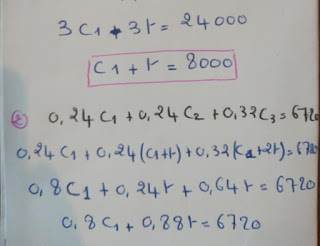 3C₁ + 3r = 24000
C₁ + r = 8000
② 0,24C₁ + 0,24C₂ + 0,32C₃ = 6720
0,24C₁ + 0,24(C₁+r) + 0,32(C₁+2r) = 6720
0,8C₁ + 0,24r + 0,64r = 6720
0,8C₁ + 0,88r = 6720